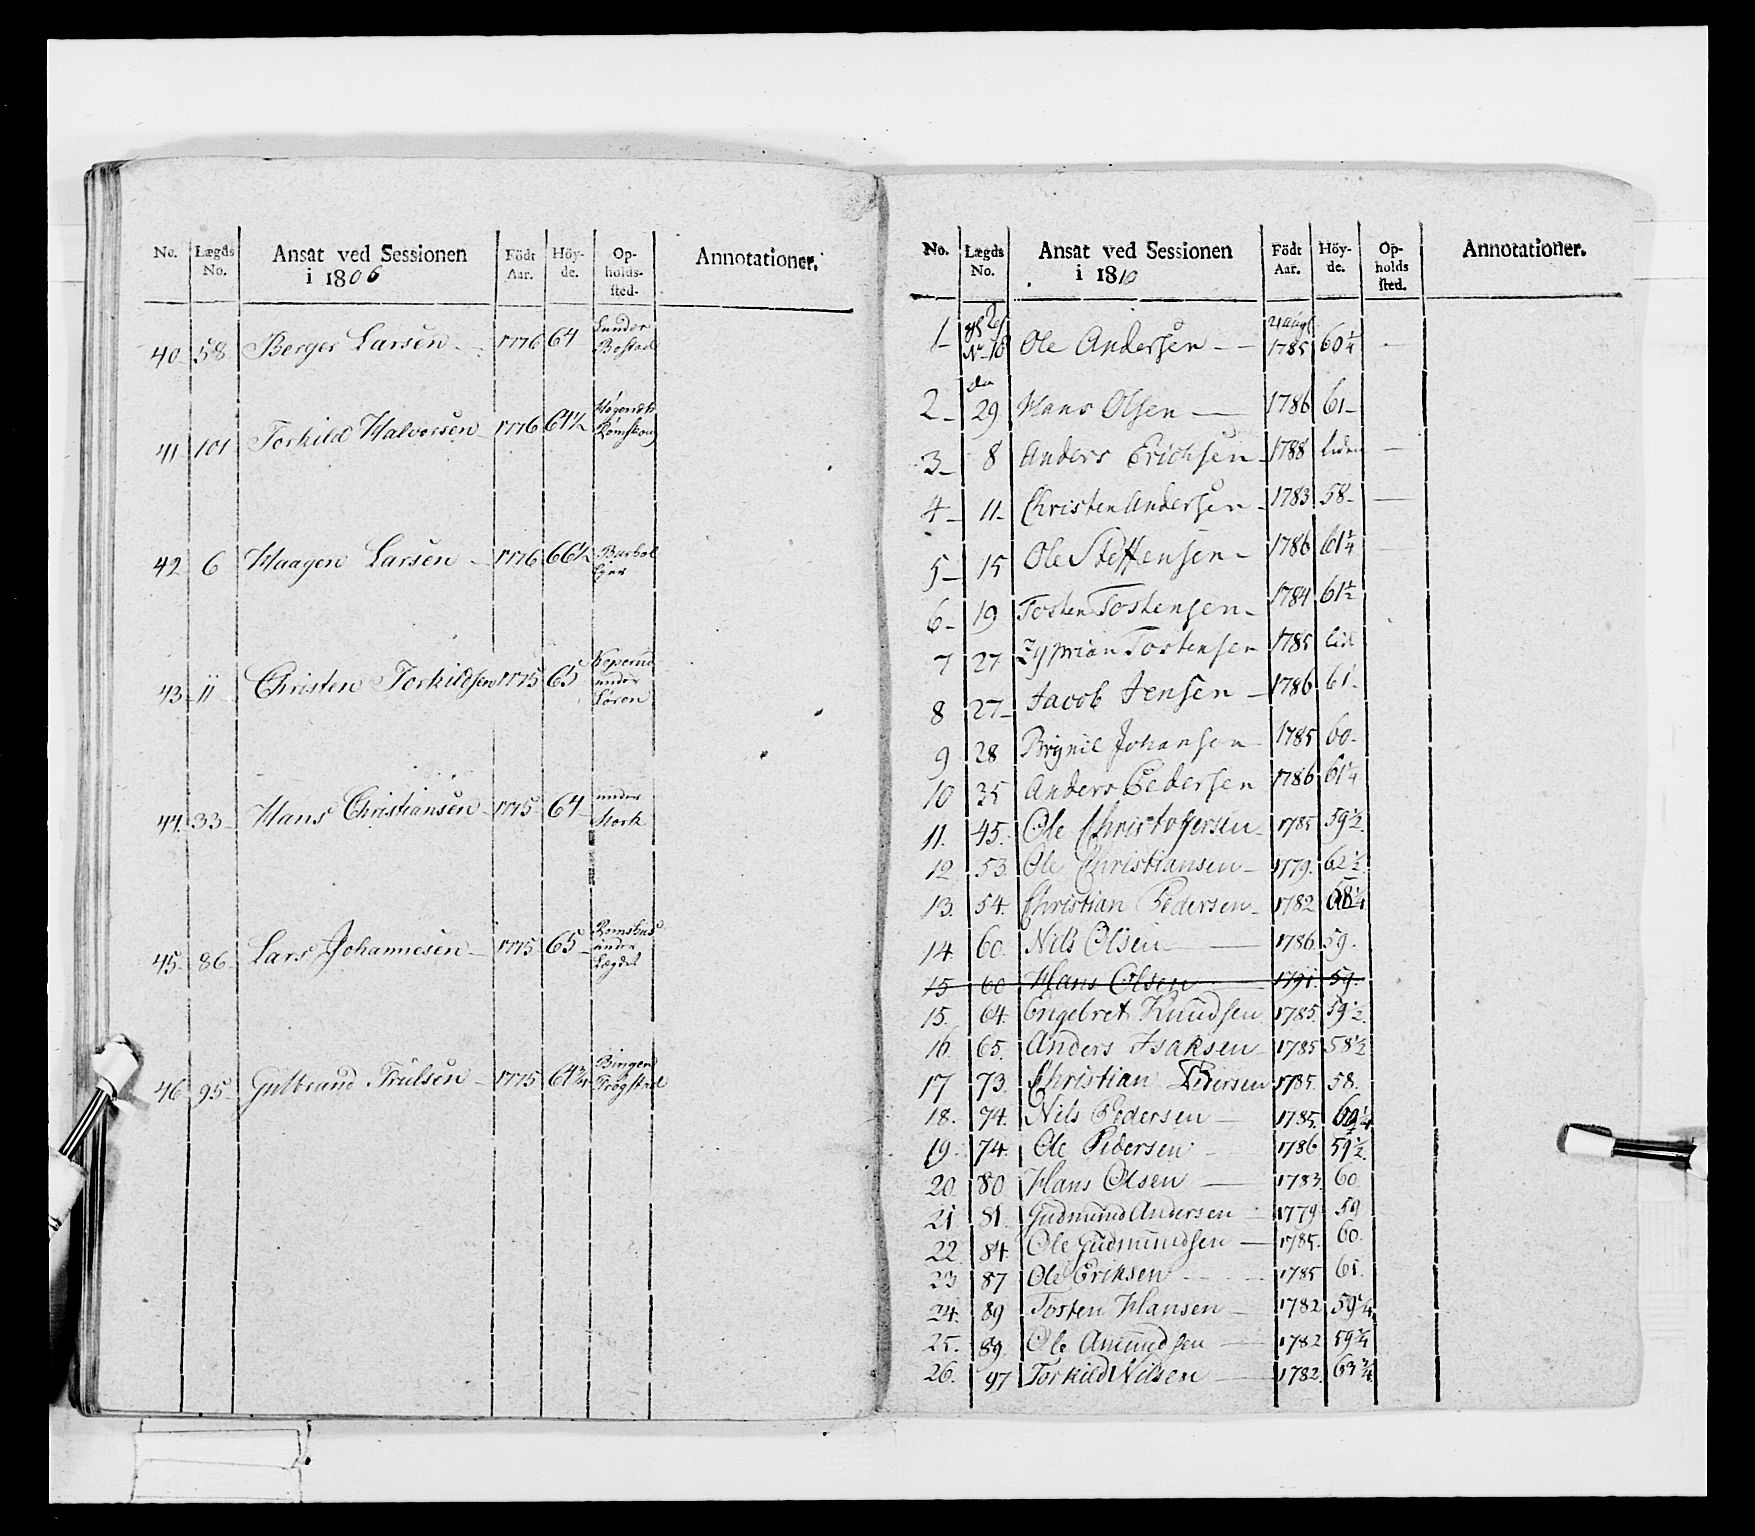 No. Lægds No. Ansat ved Sessionen i 1806 Födt Aar. Höy-de. Op-holds-sted. Annotationer.
40 58 Berger Larsen 1776 64 Bostad
41 101 Torkild Halvorsen 1776 61½ Rømskoug
42 6 Haagen Larsen 1776 66½
43 11 Christen Torkildsen 1775 65 Koperud under Løren
44 33 Hans Christiansen 1775 64 under Mork
45 86 Lars Johannesen 1775 65 under Lægdet
46 95 Gulbrand Trulsen 1775 61¾ Trøgstad
No. Lægds No. Ansat ved Sessionen i 1810 Födt Aar. Höy-de. Op-holds sted. Annotationer.
1 No 16 Ole Andersen 1785 60¼
2 29 Hans Olsen 1786 61
3 8 Anders Erichsen 1788 liden
4 11 Christen Andersen 1783 58
5 15 Ole Steffensen 1786 61¼
6 19 Tosten Tostensen 1784 61½
7 27 Zyprian Tostensen 1785 lid
8 27 Jacob Jensen 1786 61
9 28 Johansen 1785 60
10 35 Anders Pedersen 1786 61¼
11. 45. Ole Christofersen 1785 59½
12 53. Ole Christiansen 1779. 62½
13. 54. Christian Pedersen 1782
14 60. Nils Olsen 1786. 59.
15 60 Hans Olsen 1791. 59.
15. 64. Engebret Knudsen 1785. 59½
16. 65. Anders Isaksen 1785 58½
17 73. Christian Pedersen 1785. 58.
18. 74. Nils Pedersen 1785.
19. 74. Ole Pedersen 1786 59½
20. 80. Hans Olsen 1783. 60.
21 81. Gudmund Andersen 1779 59
22 84. Ole Gudmundsen 1785. 60.
23 87 Ole Eriksen 1785 61.
24. 89 Tosten Hansen 1782 59¼
25. 89. Ole Amundsen 1782 59¼
26. 97 Torkild Nilsen 1782. 63¾